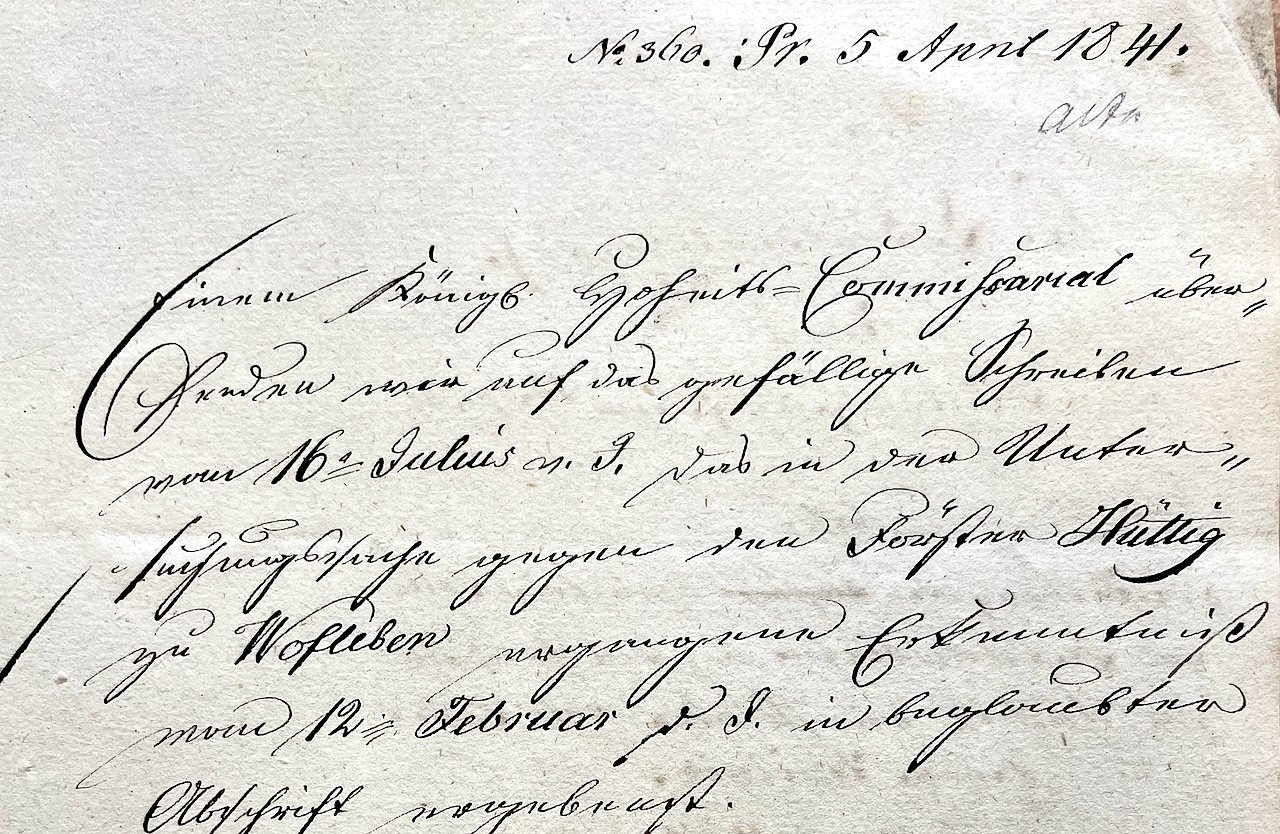 No. 360. Pr. 5 April 1841.
acta
Einem Königl. Hoheits-Commissariat über-
senden wir auf das gefällige Schreiben
vom 16n Julius v. J. das in der Unter-
suchungssache gegen den Förster Hüttig
zu Wofleben ergangene Erkenntniß
vom 12n Februar d. J. in beglaubter
Abschrift ergebenst.